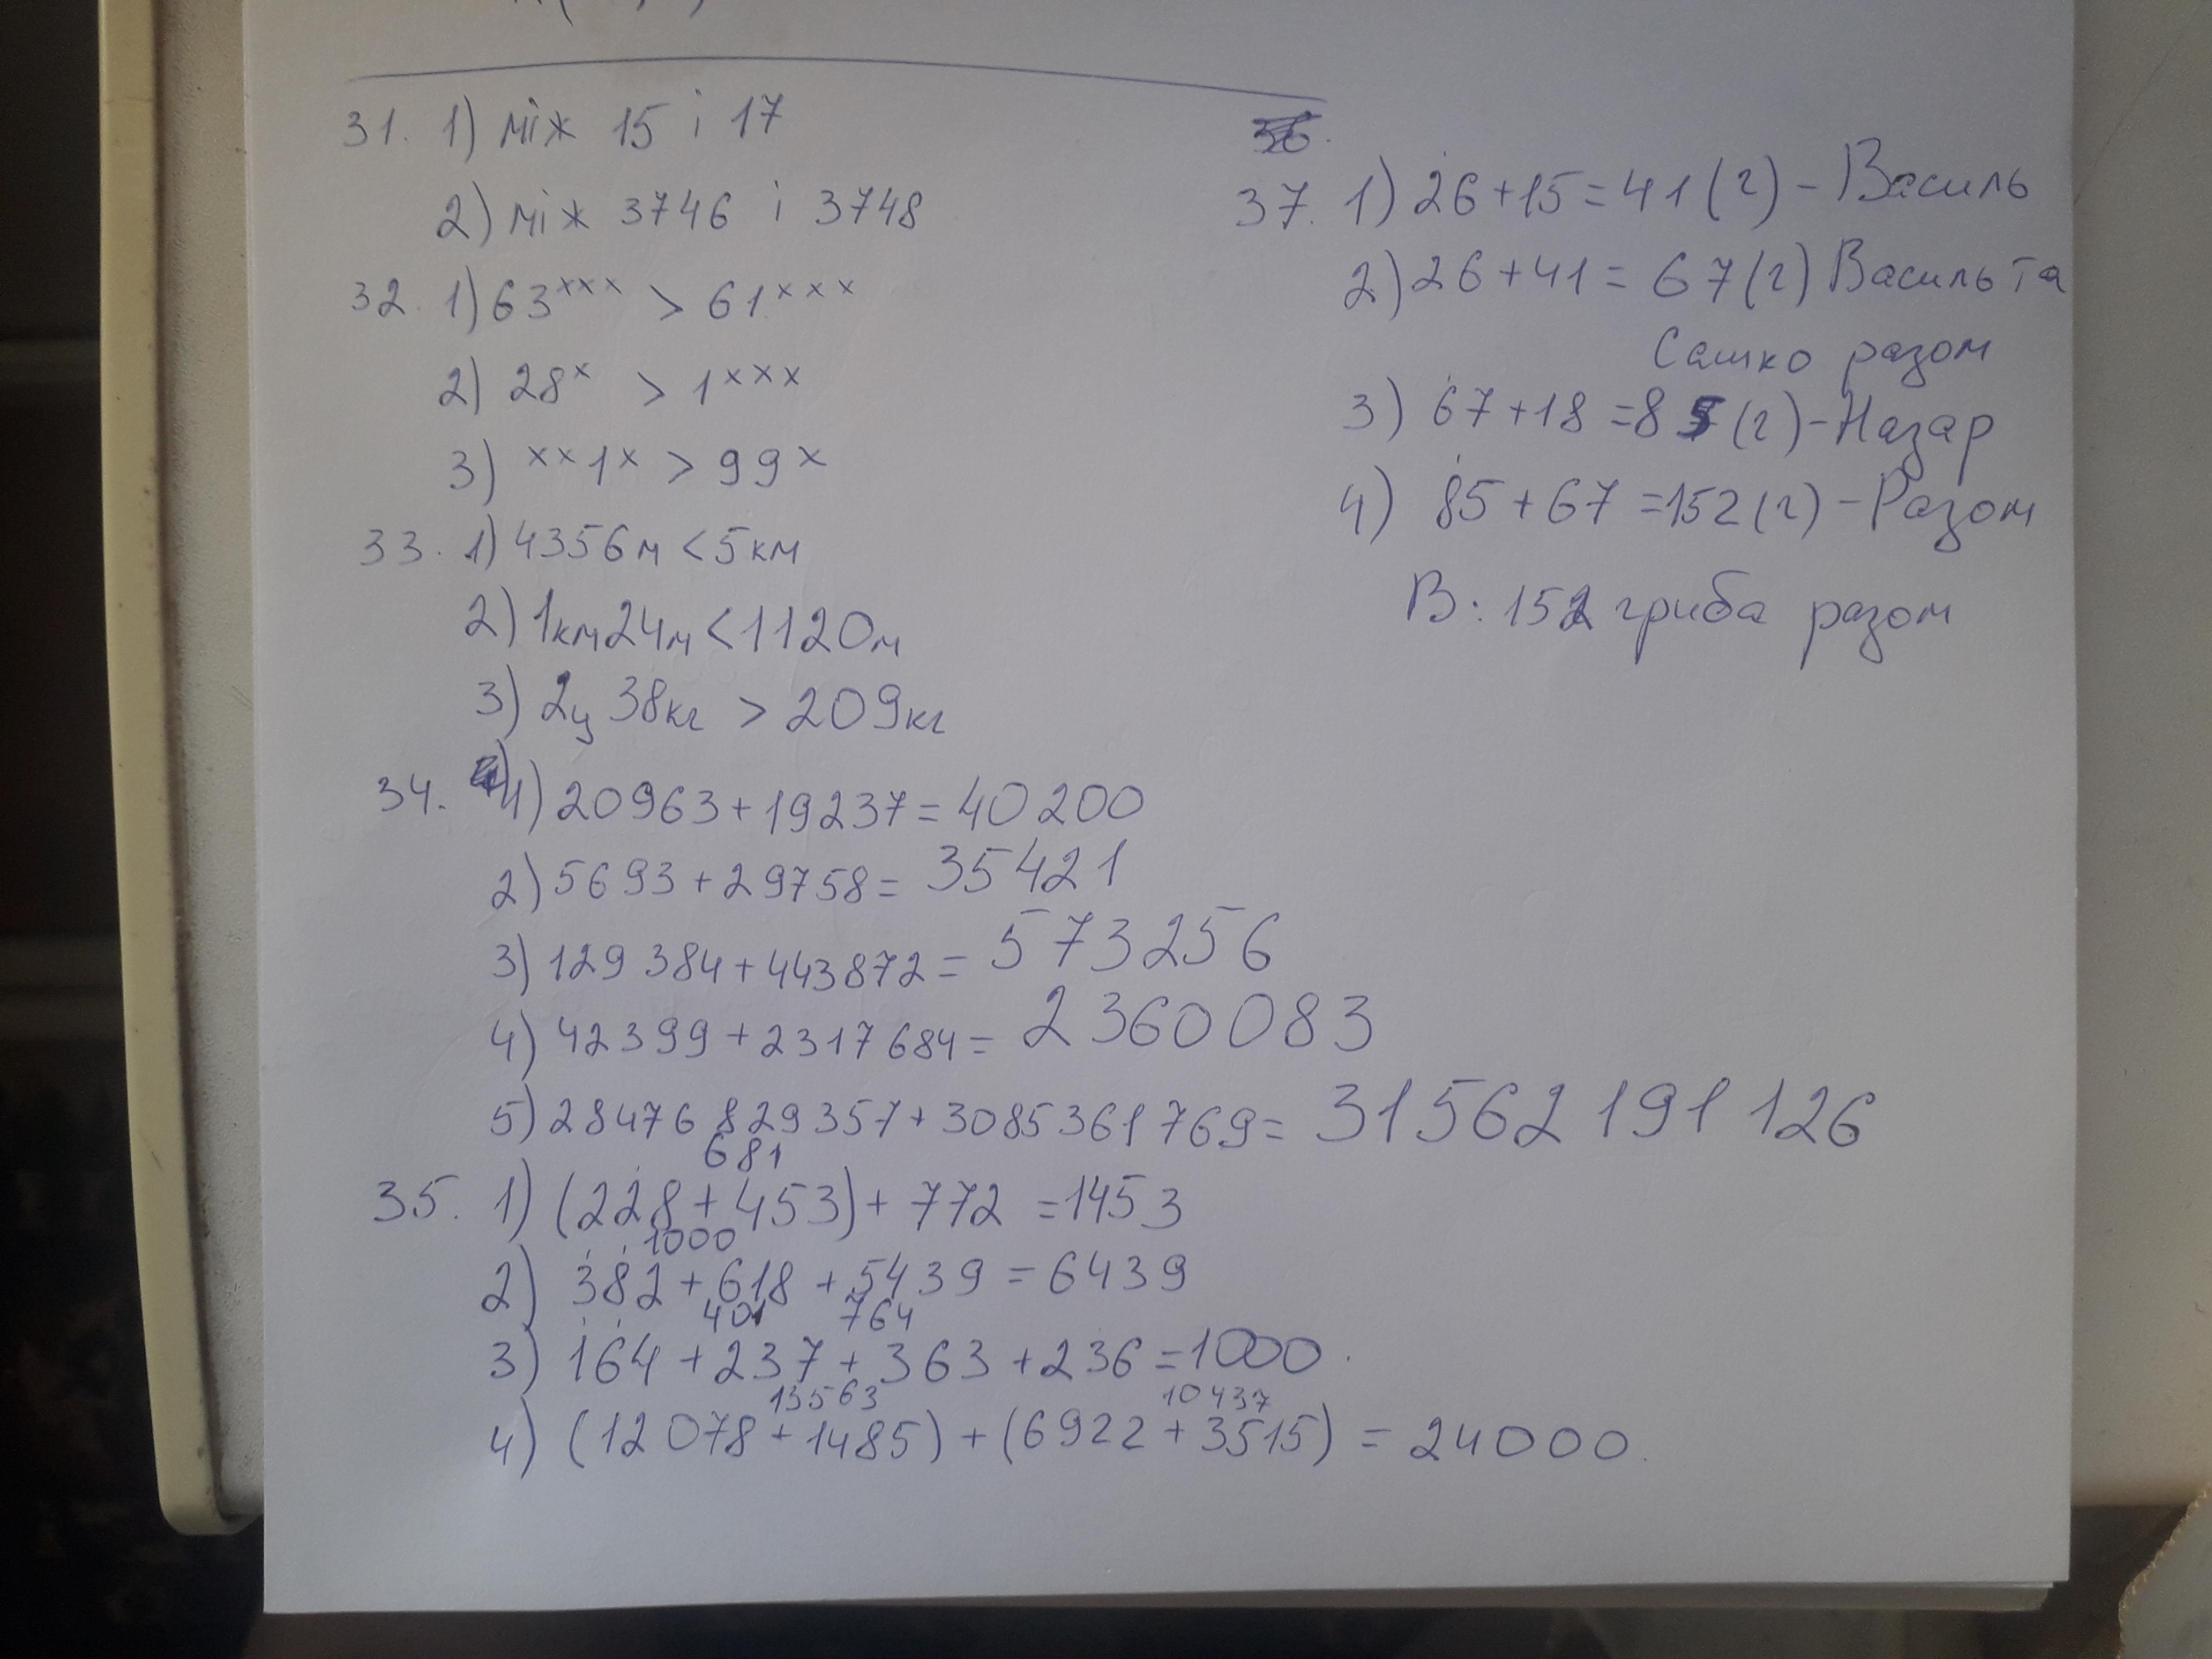 31. 1) між 15 і 17
2) між 3746 і 3748
32. 1) 63ˣˣˣ > 61ˣˣˣ
2) 28ˣ > 1ˣˣˣ
3) ˣˣ1ˣ > 99ˣ
33. 1) 4356м < 5км
2) 1км24м < 1120м
3) 2ц 38кг > 209кг
34. 1) 20963 + 19237 = 40200
2) 5693 + 29758 = 35421
3) 129 384 + 443872 = 573256
4) 42399 + 2317684 = 2360083
5) 28476 829 357 + 3085 361 769 = 31562 191 126
681
35. 1) (228 + 453) + 772 = 1453
1000
2) 382 + 618 + 5439 = 6439
401 764
3) 164 + 237 + 363 + 236 = 1000.
13563 10437
4) (12078 + 1485) + (6922 + 3515) = 24000.
36.
37. 1) 26 + 15 = 41 (г) - Василь
2) 26 + 41 = 67 (г) Василь та
Сашко разом
3) 67 + 18 = 85 (г) - Назар
4) 85 + 67 = 152 (г) - Разом
В: 152 гриба разом